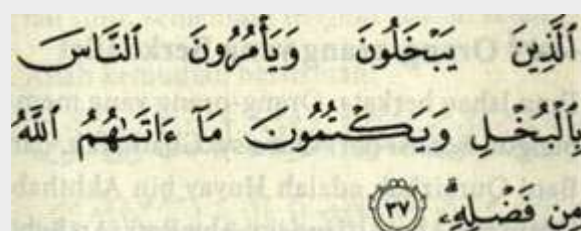 ٱلَّذِينَ يَبْخَلُونَ وَيَأْمُرُونَ ٱلنَّاسَ
بِٱلْبُخْلِ وَيَكْتُمُونَ مَآ ءَاتَىٰهُمُ ٱللَّهُ
مِن فَضْلِهِۦ ۗ ٣٧